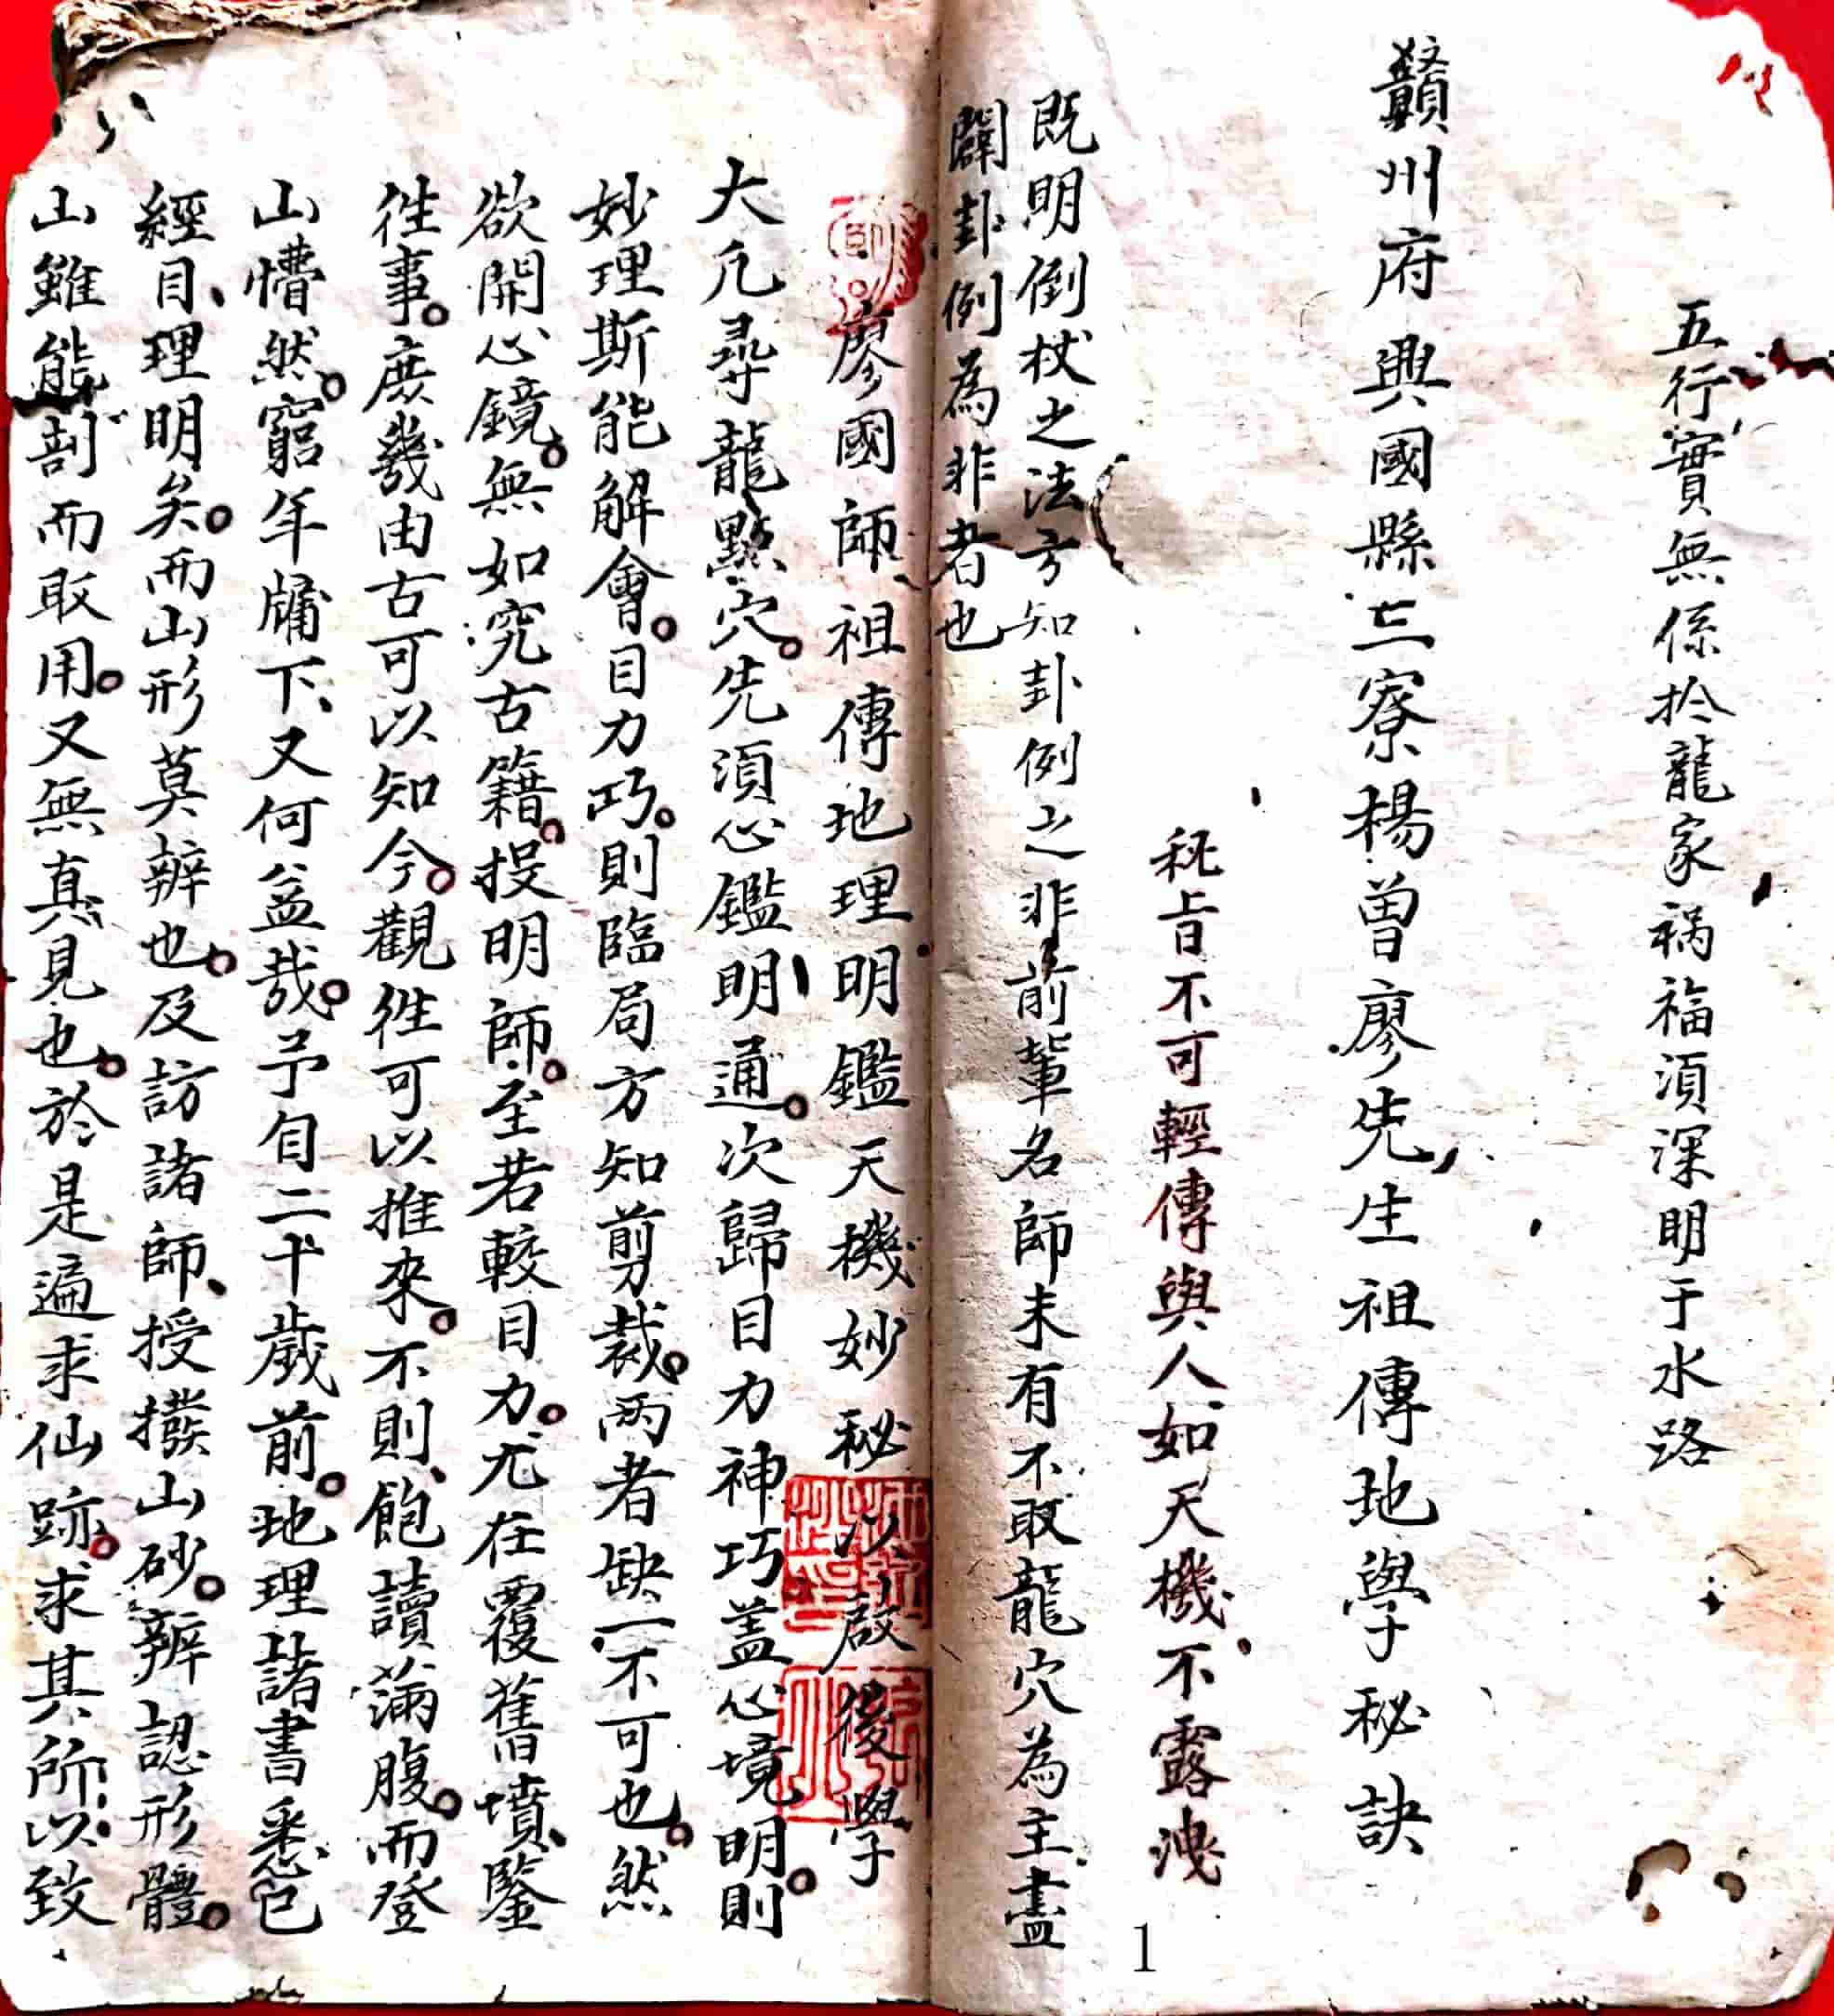 五行實無係扵龍家禍福須深明于水路
贛州府興國縣三寮楊曾廖先生祖傳地學秘訣
秘旨不可輕傳與人如天機不露洩
既明倒杖之法方知卦例之非前輩名師未有不取龍穴為主盡
闢卦例為非者也
廖國師祖傳地理明鑑天機妙秘以啟後學
大凢尋龍點穴先須心鑑明通次歸目力神巧蓋心境明則
妙理斯能解會目力巧則臨局方知剪裁兩者缺一不可也然
欲開心鏡無如究古籍投明師至若較目力尤在覆舊墳鑒
徃事庶幾由古可以知今觀徃可以推來不則飽讀滿腹而登
山懵然窮年牖下又何益哉予自二十歲前地理諸書悉已
經目理明矣而山形莫辨也及訪諸師授撥山砂辨認形體
山雖能剖而取用又無真見也於是遍求仙跡求其所以致
1